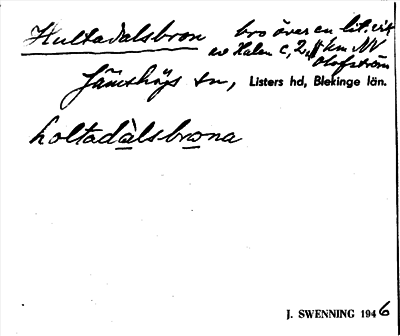 Hultadalsbron bro över en lit. vik
av Halen c, 2, km NV
Olofström
Jämshögs sn, Listers hd, Blekinge län.
holtadàlsbrona
J. SWENNING 1946